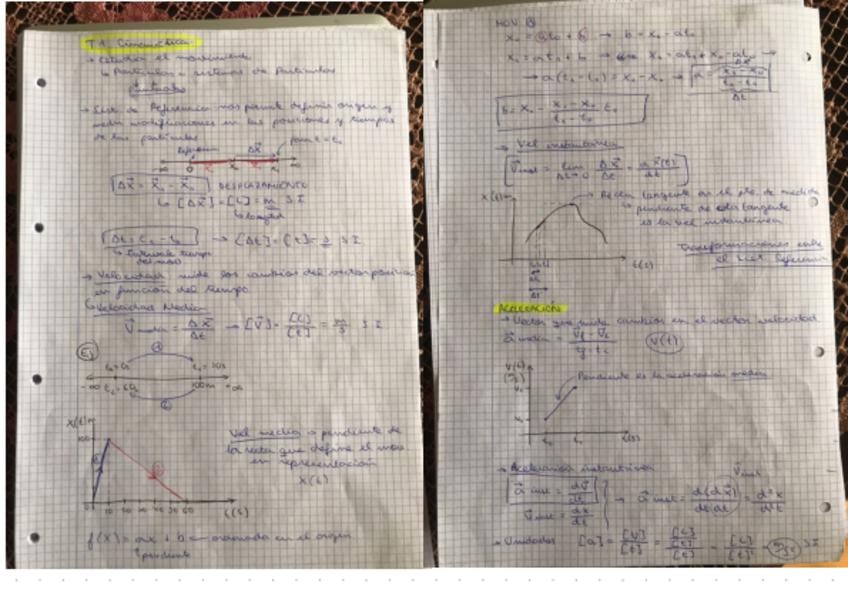 T1. Cinemática
→ Estudia el movimiento
↳ Partículas o sistemas de Partículas
puntuales
→ Sist de Referencia nos permite definir origen y
medir modificaciones en las posiciones y tiempos
de las partículas
Referencia
Δx
para t = t₁
-∞ 0 x₀ x₁ ∞
Δx⃗ = x⃗₁ - x⃗₀ DESPLAZAMIENTO
↳ [Δx⃗] = [L] = m S I
↳ longitud
Δt = t₁ - t₀ → [Δt] = [t] = s S I
↳ Intervalo tiempo
del mov
→ Velocidad mide los cambios del vector posición
en función del tiempo
↳ Velocidad Media
V⃗ media = Δx⃗/Δt → [V⃗] = [L]/[t] = m/s S I
Ej
t₀ = 0s t₁ = 10s
-∞ 100m +∞
X(t)m
100
0 10 20 30 40 50 60
t(s)
Vel media → pendiente de
la recta que define el mov
en representación
X(t)
f(x) = ax + b ← ordenada en el origen
↑ pendiente
MOV
x₀ = at₀ + b → b = x₀ - at₀
x₁ = at₁ + b → x₁ = at₁ + x₀ - at₀ →
→ a(t₁ - t₀) = x₁ - x₀ → a = x₁ - x₀/t₁ - t₀
Δx
Δt
b = x₀ - x₁ - x₀/t₁ - t₀ t₀
→ Vel instantánea
V⃗ inst = lim Δt→0 Δx⃗/Δt = dx⃗(t)/dt
X(t)m
→ Recta tangente en el pto. de medida
↳ pendiente de esta tangente
es la vel instantánea
t(s)
Δt
Transformaciones entre
el Sist Referencia
ACELERACIÓN
→ Vector que mide cambios en el vector velocidad
a⃗ media = V⃗f - V⃗i/tf - ti V(t)
V(t)
(m/s)
V₁
V₀
Pendiente es la aceleración media
t₀ t₁ t(s)
→ Aceleración instantánea
V inst
a⃗ inst = dv⃗/dt → a⃗ inst = d(dx⃗)/dt(dt) = d²x/d²t
V⃗ inst = dx/dt
→ Unidades [a] = [V]/[t] = [L]/[t]/[t] = [L]/[t]² = m/s² S I